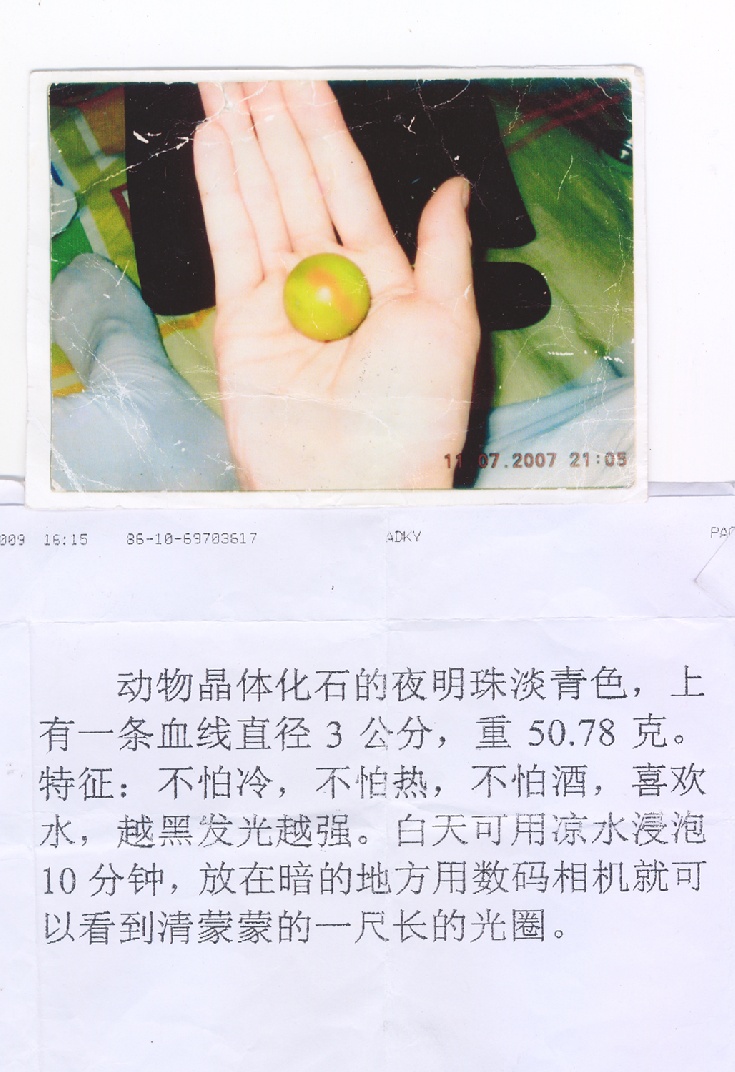 11 07.2007 21:05
009 16:15 86-10-69703617 ADKY PAG
动物晶体化石的夜明珠淡青色，上
有一条血线直径 3 公分，重 50.78 克。
特征：不怕冷，不怕热，不怕酒，喜欢
水，越黑发光越强。白天可用凉水浸泡
10 分钟，放在暗的地方用数码相机就可
以看到清蒙蒙的一尺长的光圈。